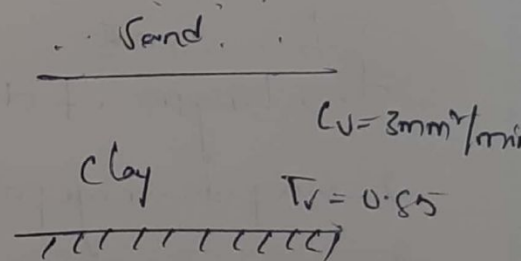 Sand
Cv = 3mm²/min
Clay
Tv = 0.85